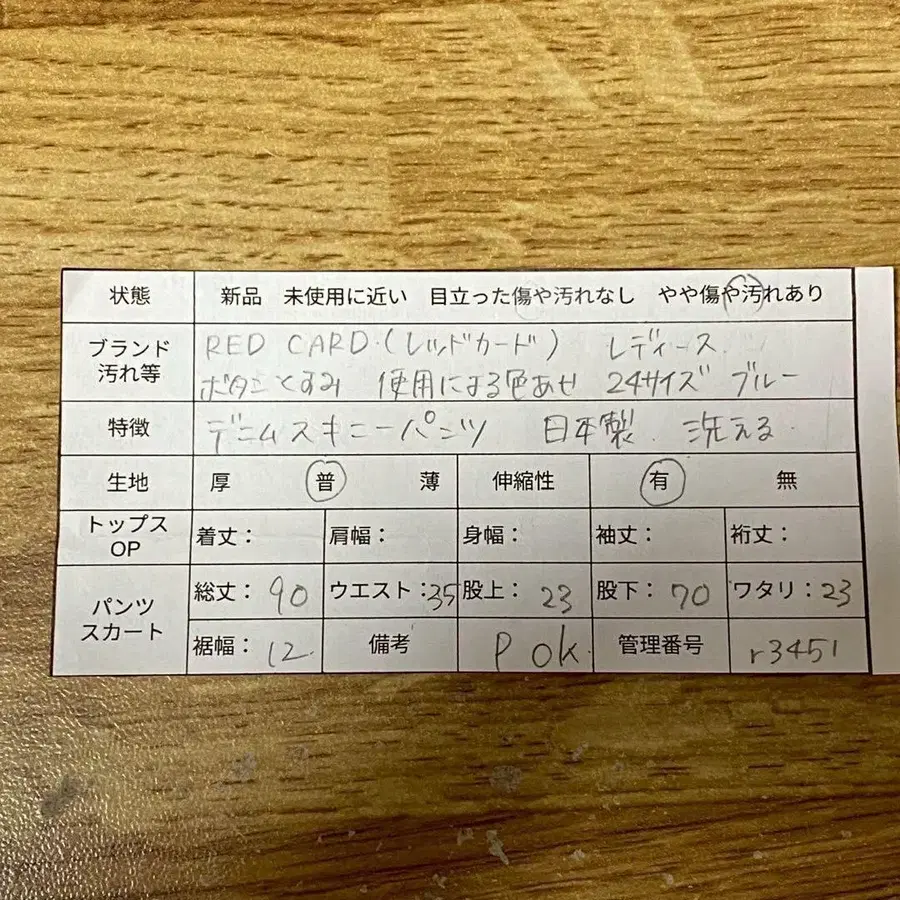 状態 新品 未使用に近い 目立った傷や汚れなし やや傷や汚れあり
ブランド 汚れ等 RED CARD.(レッドカード) レディース
ボタンくすみ 使用による色あせ 24サイズ ブルー
特徴 デニムスキニーパンツ 日本製 洗える
生地 厚 普 薄 伸縮性 有 無
トップス OP 着丈: 肩幅: 身幅: 袖丈: 裄丈:
パンツ スカート 総丈:90 ウエスト:35 股上:23 股下:70 ワタリ:23
裾幅:12 備考 P ok 管理番号 r3451